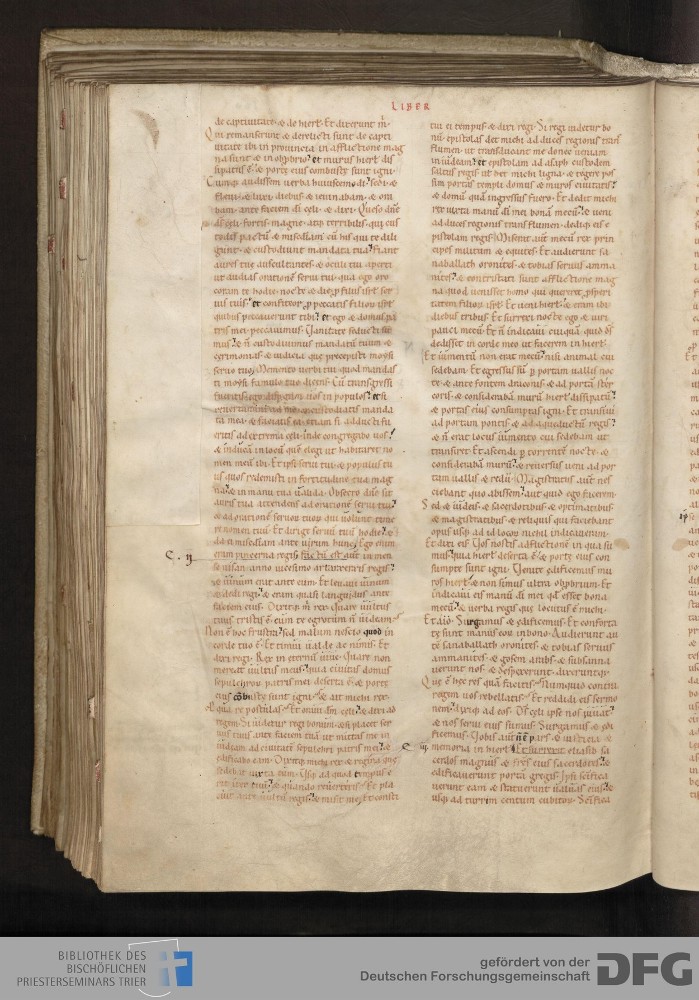 LIBER
de captivitate & de hierł. Et dixerunt m̄.
Qui remanserunt & derelicti sunt de capti
vitate ibi in provincia in afflictione mag
na sunt & in obprobrio. et murus hierł dis
sipatus ē. & portę eius combustę sunt igni.
Cumq; audissem verba huiuscemodi. sedi &
flevi & luxi diebus & ieiunabam. & ora
bam ante faciem di cęli. & dixi. Queso dn̄e
ds̄ cęli. fortis. magne. atq; terribilis. qui cus
todis pactū & misericordiam cū his qui te dili
gunt. & custodiunt mandata tua. fiant
aures tuę auscultantes. & oculi tui aperti
ut audias orationē servi tui. qua ego oro
coram te hodie. nocte & die ꝓ filiis isrł ser
vis tuis. et confiteor ꝓ peccatis filiorū isrł
quibus peccaverunt tibi. et ego & domus pa
tris mei peccavimus. Vanitate seducti su
mus. & n̄ custodivimus mandatū tuum &
cęrimonias & iudicia quę precepisti moysi
servo tuo. Memento verbi tui quod mandas
ti moysi famulo tuo dicens. Cū transgressi
fueritis. ego dispergam vos in populos. et si
revertamini ad me. & custodiatis manda
ta mea. & faciatis ea. etiam si adducti fu
eritis ad extrema cęli. inde congregabo vos.
& inducā in locū quē elegi ut habitaret no
men meū ibi. Et ipsi servi tui & populus tu
us quos redemisti in fortitudine tua mag
na. & in manu tua valida. Obsecro dn̄e sit
auris tua attendens ad orationē servi tui.
& ad orationē servorū tuorū qui volunt time
re nomen tuū. Et dirige servū tuū hodie. &
da ei misericordiam ante virum hunc. Ego enim
C. ii.
eram pincerna regis. factū est aut in men
se nisan. anno vicesimo artaxerxis regis.
& vinum erat ante eum. Et levavi vinum
& dedi regi. & eram quasi languidus ante
faciem eius. Dixitq; m̄ rex. Quare vultus
tuus tristis ē. cum te egrotum n̄ videam.
Non ē hoc frustra. sed malum nescio quod in
corde tuo ē. Et timui valde ac nimis. Et
dixi regi. Rex in eternū vive. Quare non
mereat vultus meus. quia civitas domus
sepulchrorū patris mei deserta ē. & portę
eius cōbustę sunt igni. Et ait michi rex.
Pro qua re postulas. Et oravi dm̄ cęli. & dixi ad
regem. Si videtur regi bonum. & si placet ser
vus tuus ante faciem tuā. ut mittas me in
iudeam ad civitatē sepulchri patris mei. &
edificabo eam. Dixitq; michi rex & regina quę
sedebat iuxta eum. Usq; ad quod tempus e
rit iter tuū. & quando reverteris. Et pla
cuit ante vultū regis. & misit me. Et consti
tui ei tempus. & dixi regi. Si regi videtur bo
nū. epistolas det michi ad duces regionis trans
flumen. ut transducant me donec veniam
in iudeam. et epistolam ad asaph custodem
saltus regis ut det michi ligna. & tegere pos
sim portas templi domus & muros civitatis.
& domū quā ingressus fuero. Et dedit michi
rex iuxta manū di mei bonā mecū. & veni
ad duces regionis trans flumen. dediq; eis e
pistolam regis. Misit aut mecū rex prin
cipes militum & equites. Et audierunt sa
naballath oronites & tobias servus amma
nites. & contristati sunt afflictione mag
na. quod venisset homo qui quereret ꝓsperi
tatem filiorū isrł. Et veni hierł. & eram ibi
diebus tribus. Et surrexi nocte ego & viri
pauci mecū. Et n̄ indicavi cuiquā. quid ds̄
dedisset in corde meo ut facerem in hierł.
Et iumentū non erat mecū. nisi animal cui
sedebam. Et egressus sū ꝑ portam vallis noc
te. & ante fontem draconis. & ad portā ster
coris. & considerabā murū hierł dissipatū.
& portas eius consumptas igni. Et transivi
ad portam fontis. & ad aquęductū regis.
& n̄ erat locus iumento cui sedebam ut
transiret. Et ascendi ꝑ torrentē nocte. &
considerabā murū. & reversus veni ad por
tam vallis & redii. Magistratus aut nes
ciebant quo abissem. aut quid ego facerem.
Sed & iudeis & sacerdotibus & optimatibus
& magistratibus & reliquis qui faciebant
opus usq; ad id loci nichil indicaveram.
Et dixi eis. Vos nostis afflictionē in qua su
mus. quia hierł deserta ē. & portę eius con
sumptę sunt igni. Venite ędificemus mu
ros hierł. & non simus ultra obprobrium. Et
indicavi eis manū di mei qd̄ esset bona
mecū. & verba regis quę locutus ē michi.
Et aio. Surgamus & ędificemus. Et conforta
tę sunt manus eorū in bono. Audierunt au
tē sanaballath oronites & tobias servus
ammanites & gosem arabs. & subsanna
verunt nos & despexerunt. dixeruntq;
Quę ē hęc res quā facitis. Numquid contra
regem vos rebellatis. Et reddidi eis sermo
nem. dixiq; ad eos. Ds̄ cęli ipse nos iuvat.
& nos servi eius sumus. Surgamus & edi
ficemus. Vobis aut n̄ ē pars & iusticia &
C. iii.
memoria in hierł. Et surrexit eliasib sa
cerdos magnus & fr̄es eius sacerdotes. &
edificaverunt portā gregis. Ipsi sc̄ifica
verunt eam & statuerunt valvas eius. &
usq; ad turrim centum cubitorū. Sc̄ifica
BIBLIOTHEK DES
BISCHÖFLICHEN
PRIESTERSEMINARS TRIER
gefördert von der
Deutschen Forschungsgemeinschaft
DFG